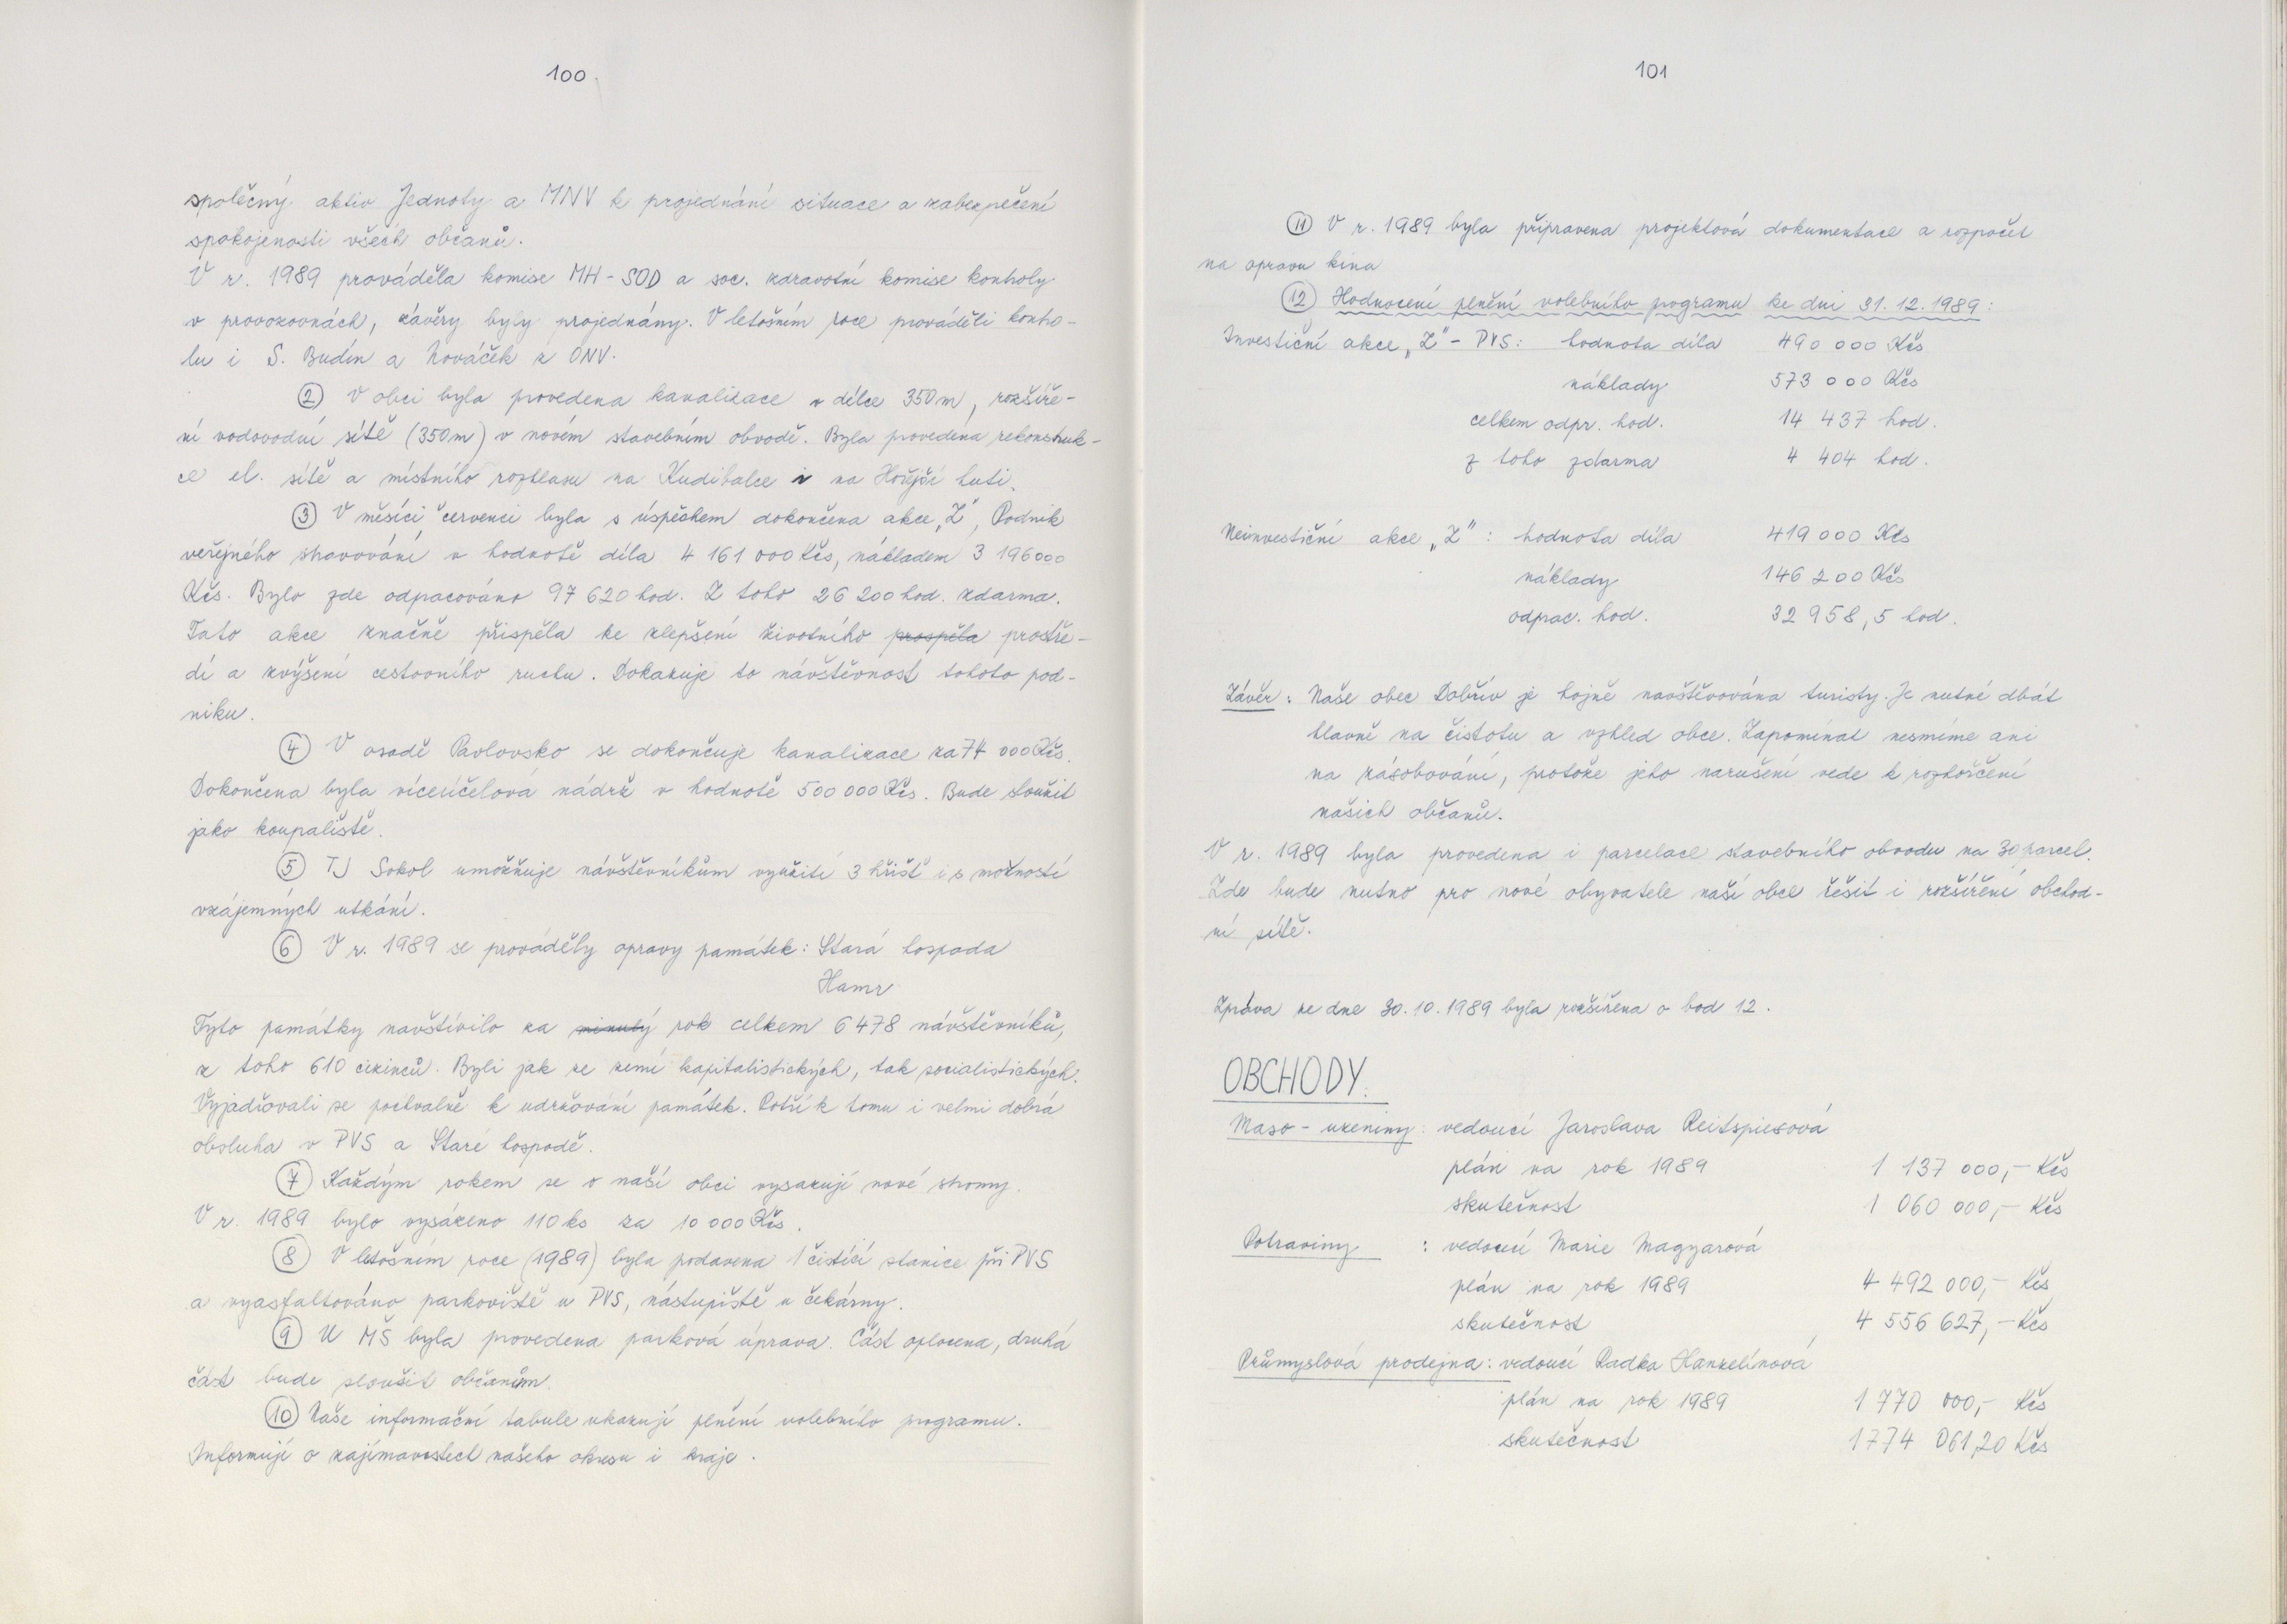 100.
společný aktiv Jednoty a MNV k projednání situace a zabezpečení
spokojenosti všech občanů.
V r. 1989 prováděla komise MH-SOD a soc. zdravotní komise kontroly
v provozovnách, závěry byly projednány. V letošním roce prováděli kontro-
lu i S. Budín a Nováček z ONV.
② V obci byla provedena kanalizace v délce 350m, rozšíře-
ní vodovodní sítě (350m) v novém stavebním obvodě. Byla provedena rekonstruk-
ce el. sítě a místního rozhlasu na Kudibalce i na Hořejší huti.
③ V měsíci červenci byla s úspěchem dokončena akce „Z", Podnik
veřejného stravování v hodnotě díla 4 161 000 Kčs, nákladem 3 196000
Kčs. Bylo zde odpracováno 97 620 hod. Z toho 26 200 hod. zdarma.
Tato akce značně přispěla ke zlepšení životního prospěla prostře-
dí a zvýšení cestovního ruchu. Dokazuje to návštěvnost tohoto pod-
niku.
④ V osadě Pavlovsko se dokončuje kanalizace za 74 000 Kčs.
Dokončena byla víceúčelová nádrž v hodnotě 500 000 Kčs. Bude sloužit
jako koupaliště.
⑤ TJ Sokol umožňuje návštěvníkům využití 3 hřišť i s možností
vzájemných utkání.
⑥ V r. 1989 se prováděly opravy památek: Stará hospoda
Hamr
Tyto památky navštívilo za minulý rok celkem 6478 návštěvníků,
z toho 610 cizinců. Byli jak ze zemí kapitalistických, tak socialistických.
Vyjadřovali se pochvalně k udržování památek. Patří k tomu i velmi dobrá
obsluha v PVS a Staré hospodě.
⑦ Každým rokem se v naší obci vysazují nové stromy.
V r. 1989 bylo vysázeno 110 ks za 10 000 Kčs.
⑧ V letošním roce (1989) byla podavena 1 čistící stanice při PVS
a vyasfaltováno parkoviště u PVS, nástupiště u čekárny.
⑨ U MŠ byla provedena parková úprava. Část oplocena, druhá
část bude sloužit občanům.
⑩ Naše informační tabule ukazují plnění volebního programu.
Informují o zajímavostech našeho okresu i kraje.
101
⑪ V r. 1989 byla připravena projektová dokumentace a rozpočet
na opravu kina
⑫ Hodnocení plnění volebního pogramu ke dni 31.12.1989:
Investiční akce „Z" - PVS: hodnota díla 490 000 Kčs
náklady 573 000 Kčs
celkem odpr. hod. 14 437 hod.
z toho zdarma 4 404 hod.
Neinvestiční akce „Z": hodnota díla 419 000 Kčs
náklady 146 200 Kčs
odprac. hod. 32 958,5 hod.
Závěr: Naše obec Dobřív je hojně navštěvována turisty. Je nutné dbát
hlavně na čistotu a vzhled obce. Zapomínat nesmíme ani
na zásobování, protože jeho narušení vede k rozhořčení
našich občanů.
V r. 1989 byla provedena i parcelace stavebního obvodu na 30 parcel.
Zde bude nutno pro nové obyvatele naší obce řešit i rozšíření obchod-
ní sítě.
Zpráva ze dne 30.10.1989 byla rozšířena o bod 12.
OBCHODY.
Maso - uzeniny: vedoucí Jaroslava Reitspiesová
plán na rok 1989 1 137 000,- Kčs
skutečnost 1 060 000,- Kčs
Potraviny : vedoucí Marie Magyarová
plán na rok 1989 4 492 000,- Kčs
skutečnost 4 556 627,- Kčs
Průmyslová prodejna: vedoucí Radka Hanzelínová
plán na rok 1989 1 770 000,- Kčs
skutečnost 1774 061,20 Kčs